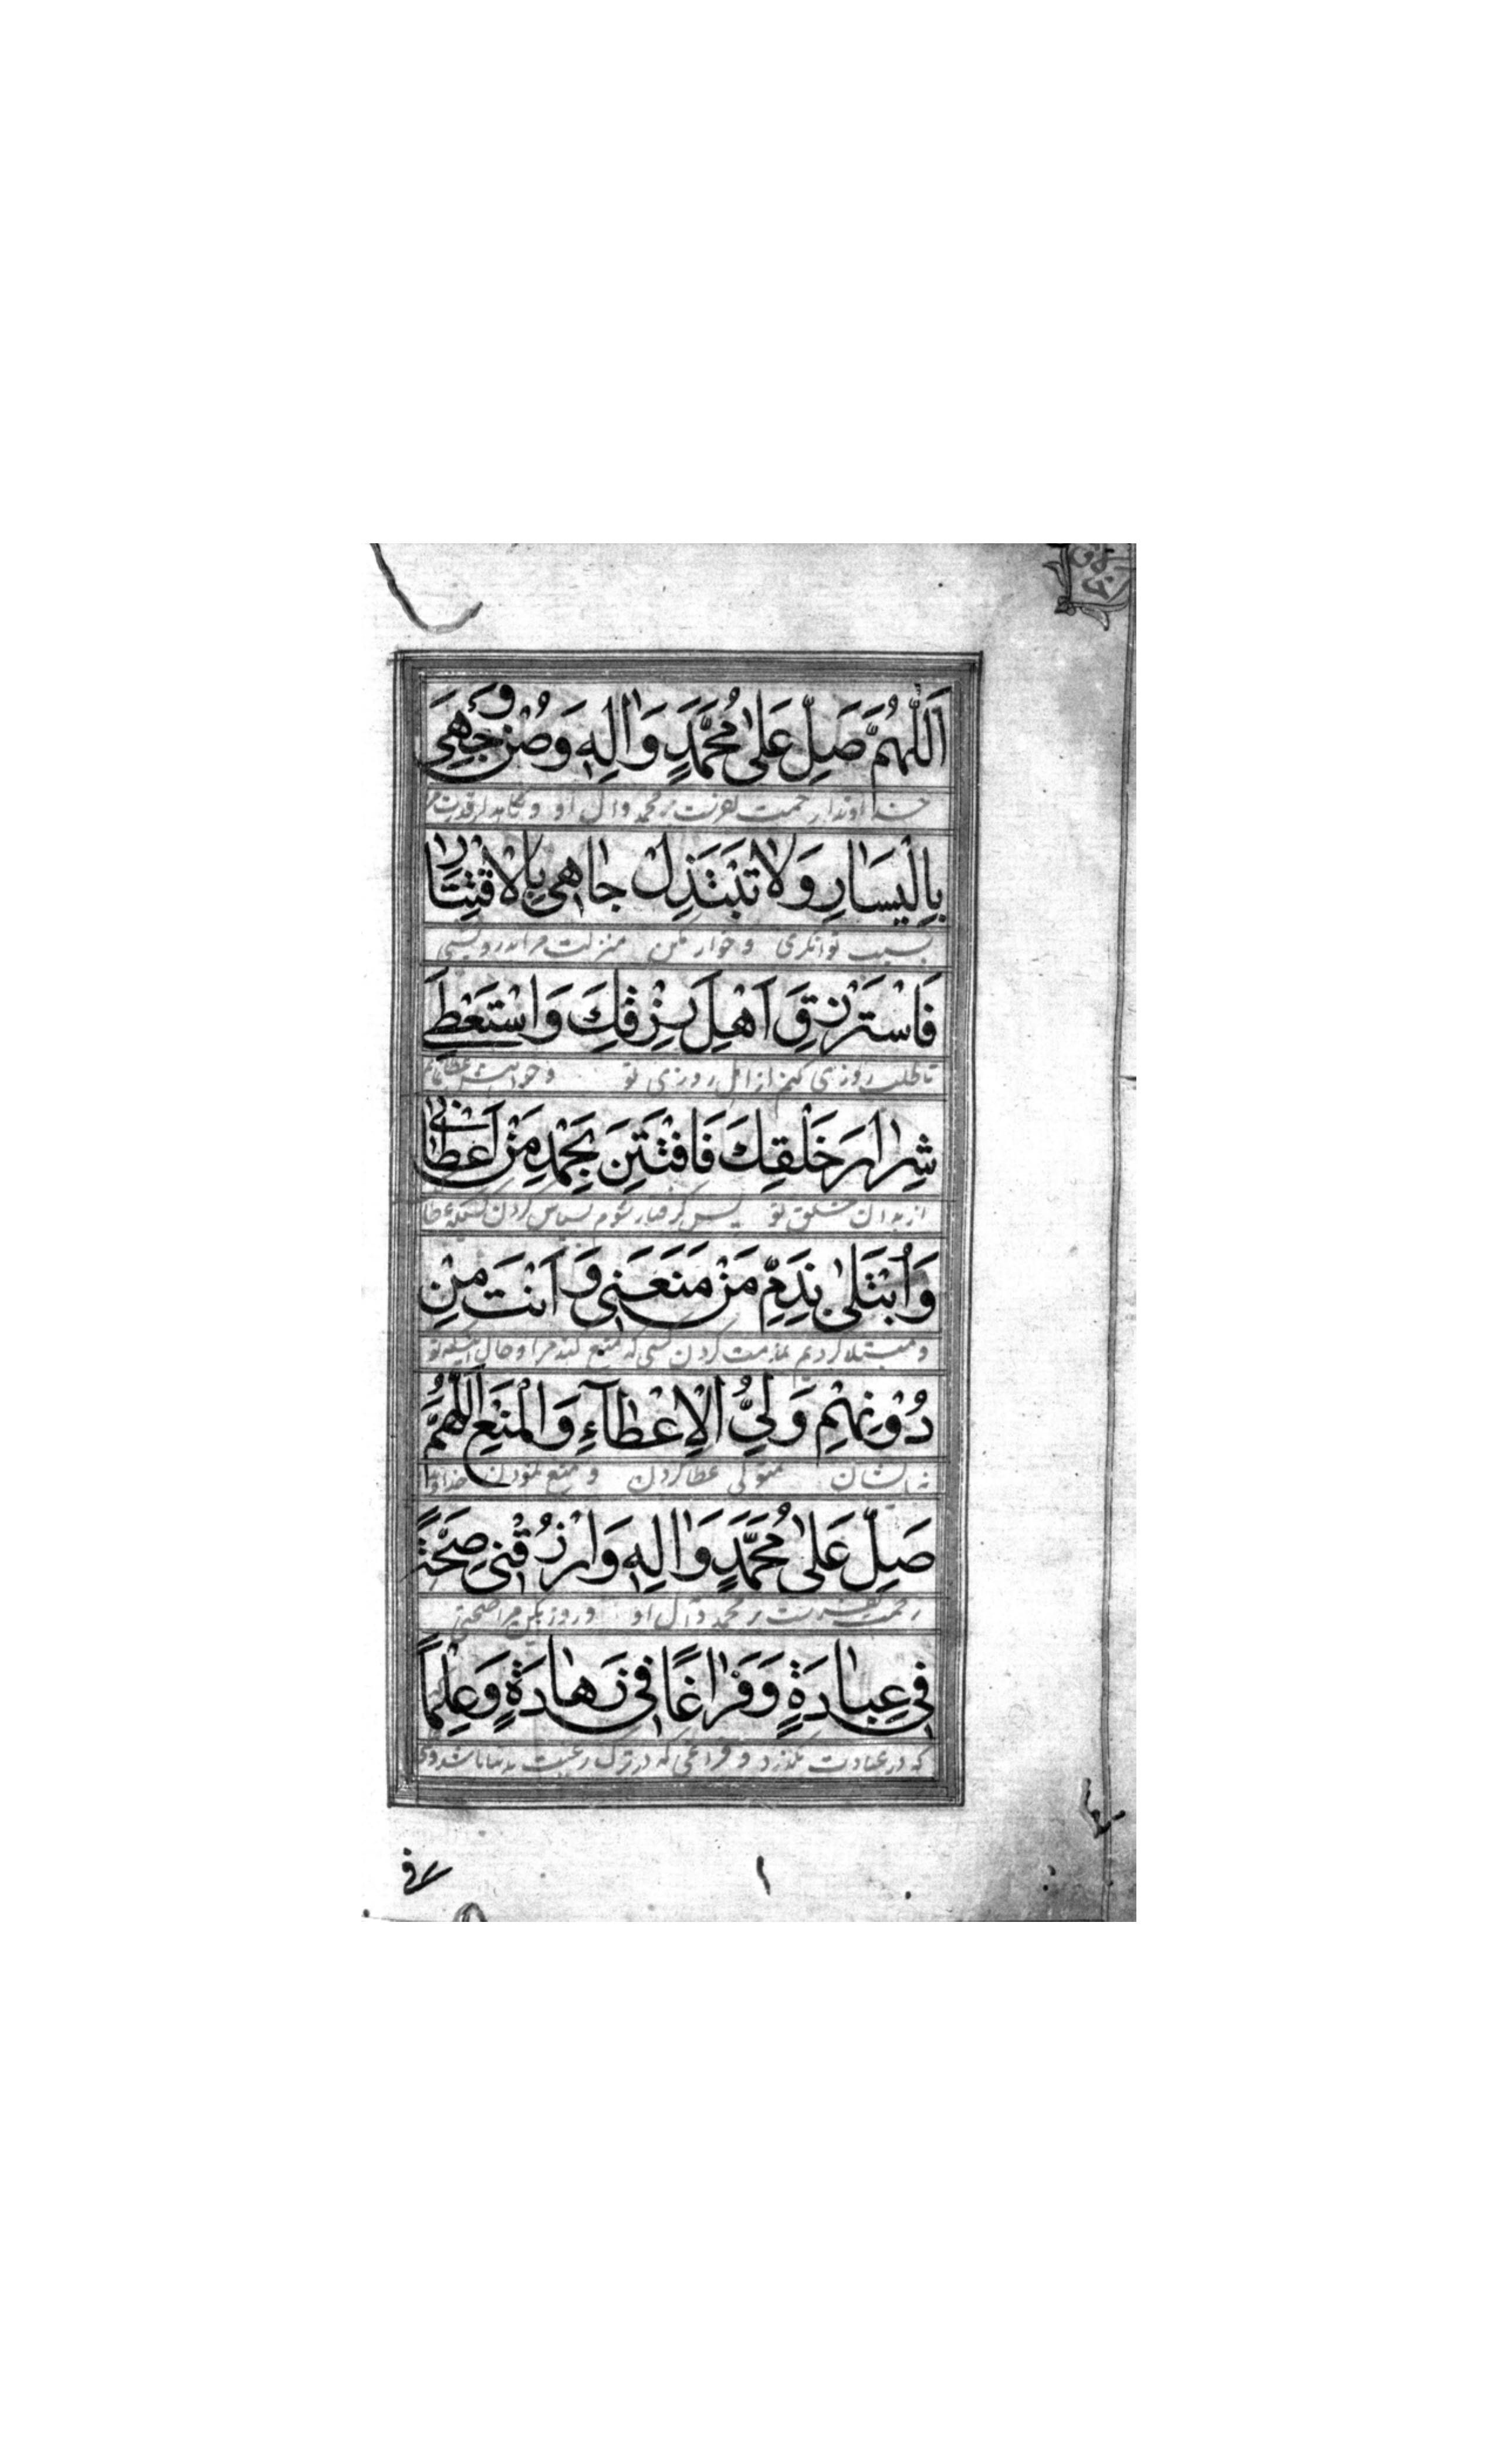 اَللّٰهُمَّ صَلِّ عَلىٰ مُحَمَّدٍ وَاٰلِهِ وَصُنْ وَجْهِيَ
خداوندا رحمت بفرست بر محمد وال او و نگاهدار قدر مر
بِالْيَسٰارِ وَلاٰ تَبْتَذِلْ جٰاهِي بِالْاِقْتِتٰارِ
بسبب توانگری وخوار مکن منزلت مرا بدرویشی
فَاَسْتَرْزِقَ اَهْلَ رِزْقِكَ وَاَسْتَعْطِيَ
تا طلب روزی کنم از اهل روزی تو وخواهش عطا نمایم
شِرٰارَ خَلْقِكَ فَاَفْتَتِنَ بِحَمْدِ مَنْ اَعْطٰانِي
از بدان خلق تو پس گرفتار شوم بسپاس کردن کسیکه عطا
وَاُبْتَلىٰ بِذَمِّ مَنْ مَنَعَنِي وَاَنْتَ مِنْ
ومبتلا گردم بمذمت کردن کسی که منع کند مرا وحال اینکه تو
دُوْنِهِمْ وَلِيُّ الْاِعْطٰآءِ وَالْمَنْعِ اَللّٰهُمَّ
نه ایشان متولی عطا کردن و منع نمودن خداوندا
صَلِّ عَلىٰ مُحَمَّدٍ وَاٰلِهِ وَارْزُقْنِي صِحَّةً
رحمت بفرست بر محمد وال او و روزی کن مرا صحتی
فِي عِبٰادَةٍ وَفَرٰاغًا فِي زَهٰادَةٍ وَعِلْمًا
که در عبادت بگذرد و فراغی که در ترک رغبت بدنیا باشد و